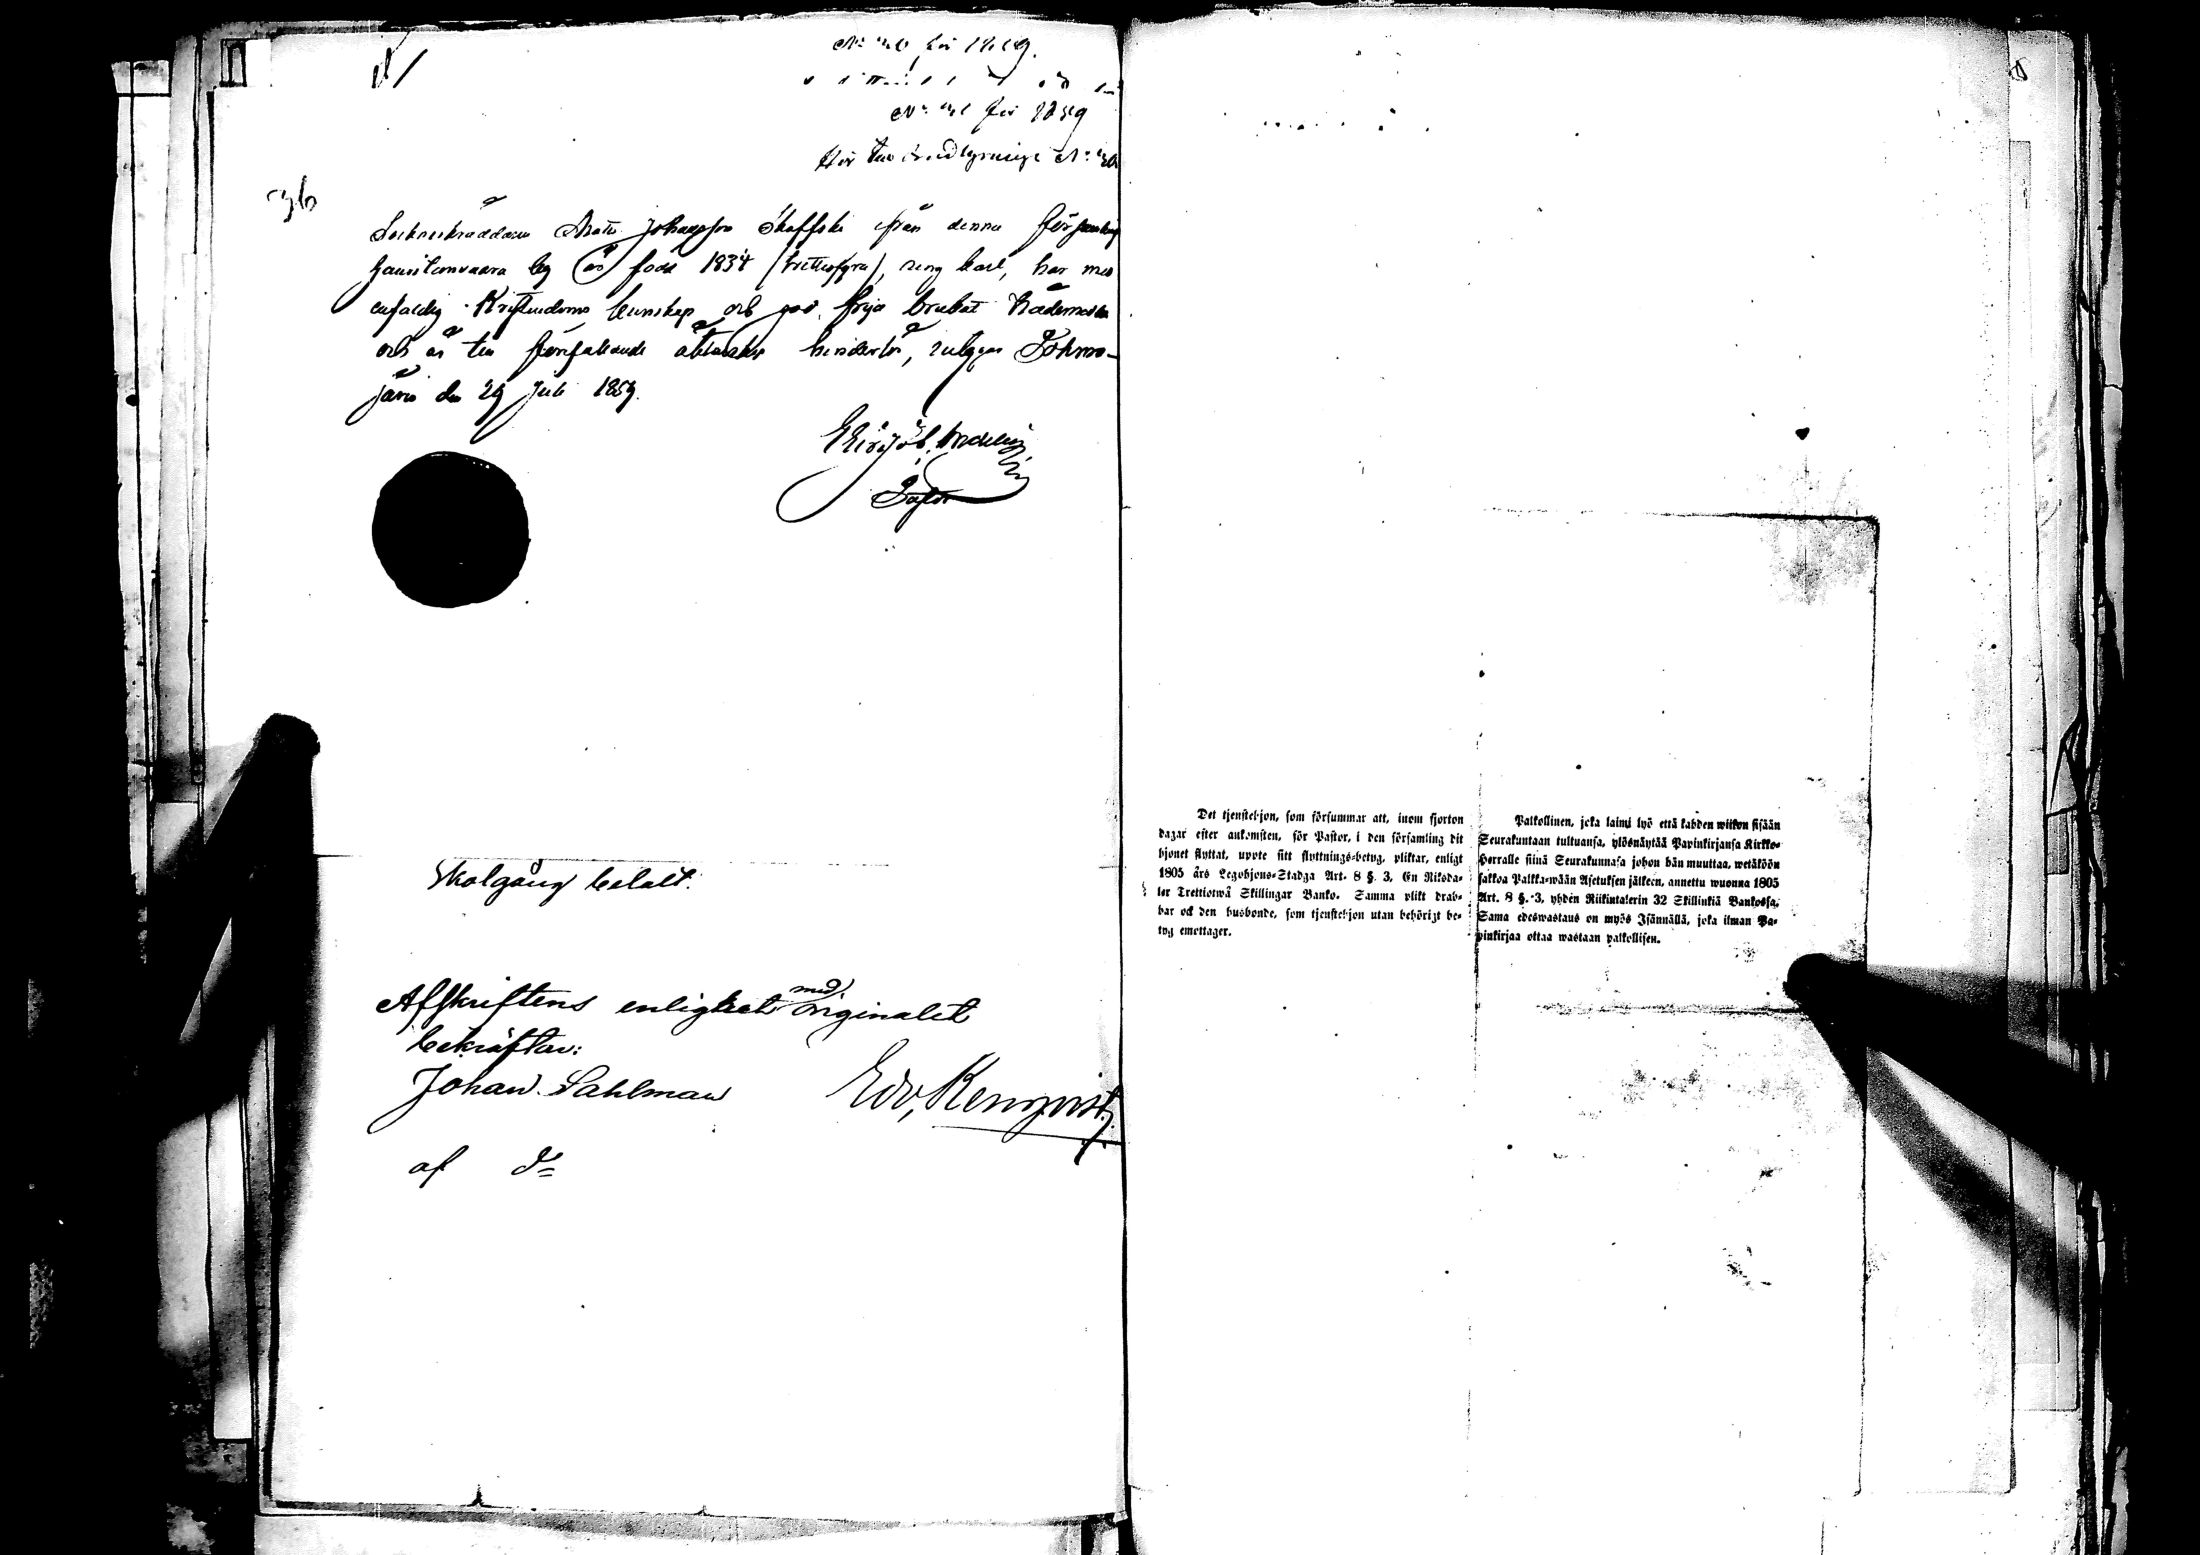 36
Sockneskräddaren Mats Johansson Skaffski från denna församling
Hausitanvaara by är född 1834 (trettiofyra), ung karl, har med
enfaldig Kristendoms kunskap och god frejd brukat Nådemedlen
och är till förefallande äktenskap hinderlös, Tohma-
järvi den 29 Juli 1859.
Pastor
Skolgång betalt.
Afskriftens enlighet med originalet
bekräftar:
Johan Sahlman Edv, Renqvist
af
Det tjenstehjon, som försummar att, inom fjorton
dagar efter ankomsten, för Pastor, i den församling dit
hjonet flyttat, uppte sitt flyttnings-betyg, pliktar, enligt
1805 års Legohjons-Stadga Art. 8 §. 3, En Riksda-
ler Trettiotwå Skillingar Banko. Samma plikt drab-
bar ock den husbonde, som tjenstehjon utan behörigt be-
tyg emottager.
Palkollinen, joka laimi lyö että kahden wiikon sisään
Seurakuntaan tultuansa, ylösnäytää Papinkirjansa Kirkko-
Herralle siinä Seurakunnasa johon hän muuttaa, wetäköön
sakkoa Palkka-wään Asetuksen jälkeen, annettu wuonna 1805
Art. 8 §. 3, yhden Riikintalerin 32 Skillinkiä Bankossa.
Sama edeswastaus on myös Isännällä, joka ilman Pa-
pinkirjaa ottaa wastaan palkollisen.